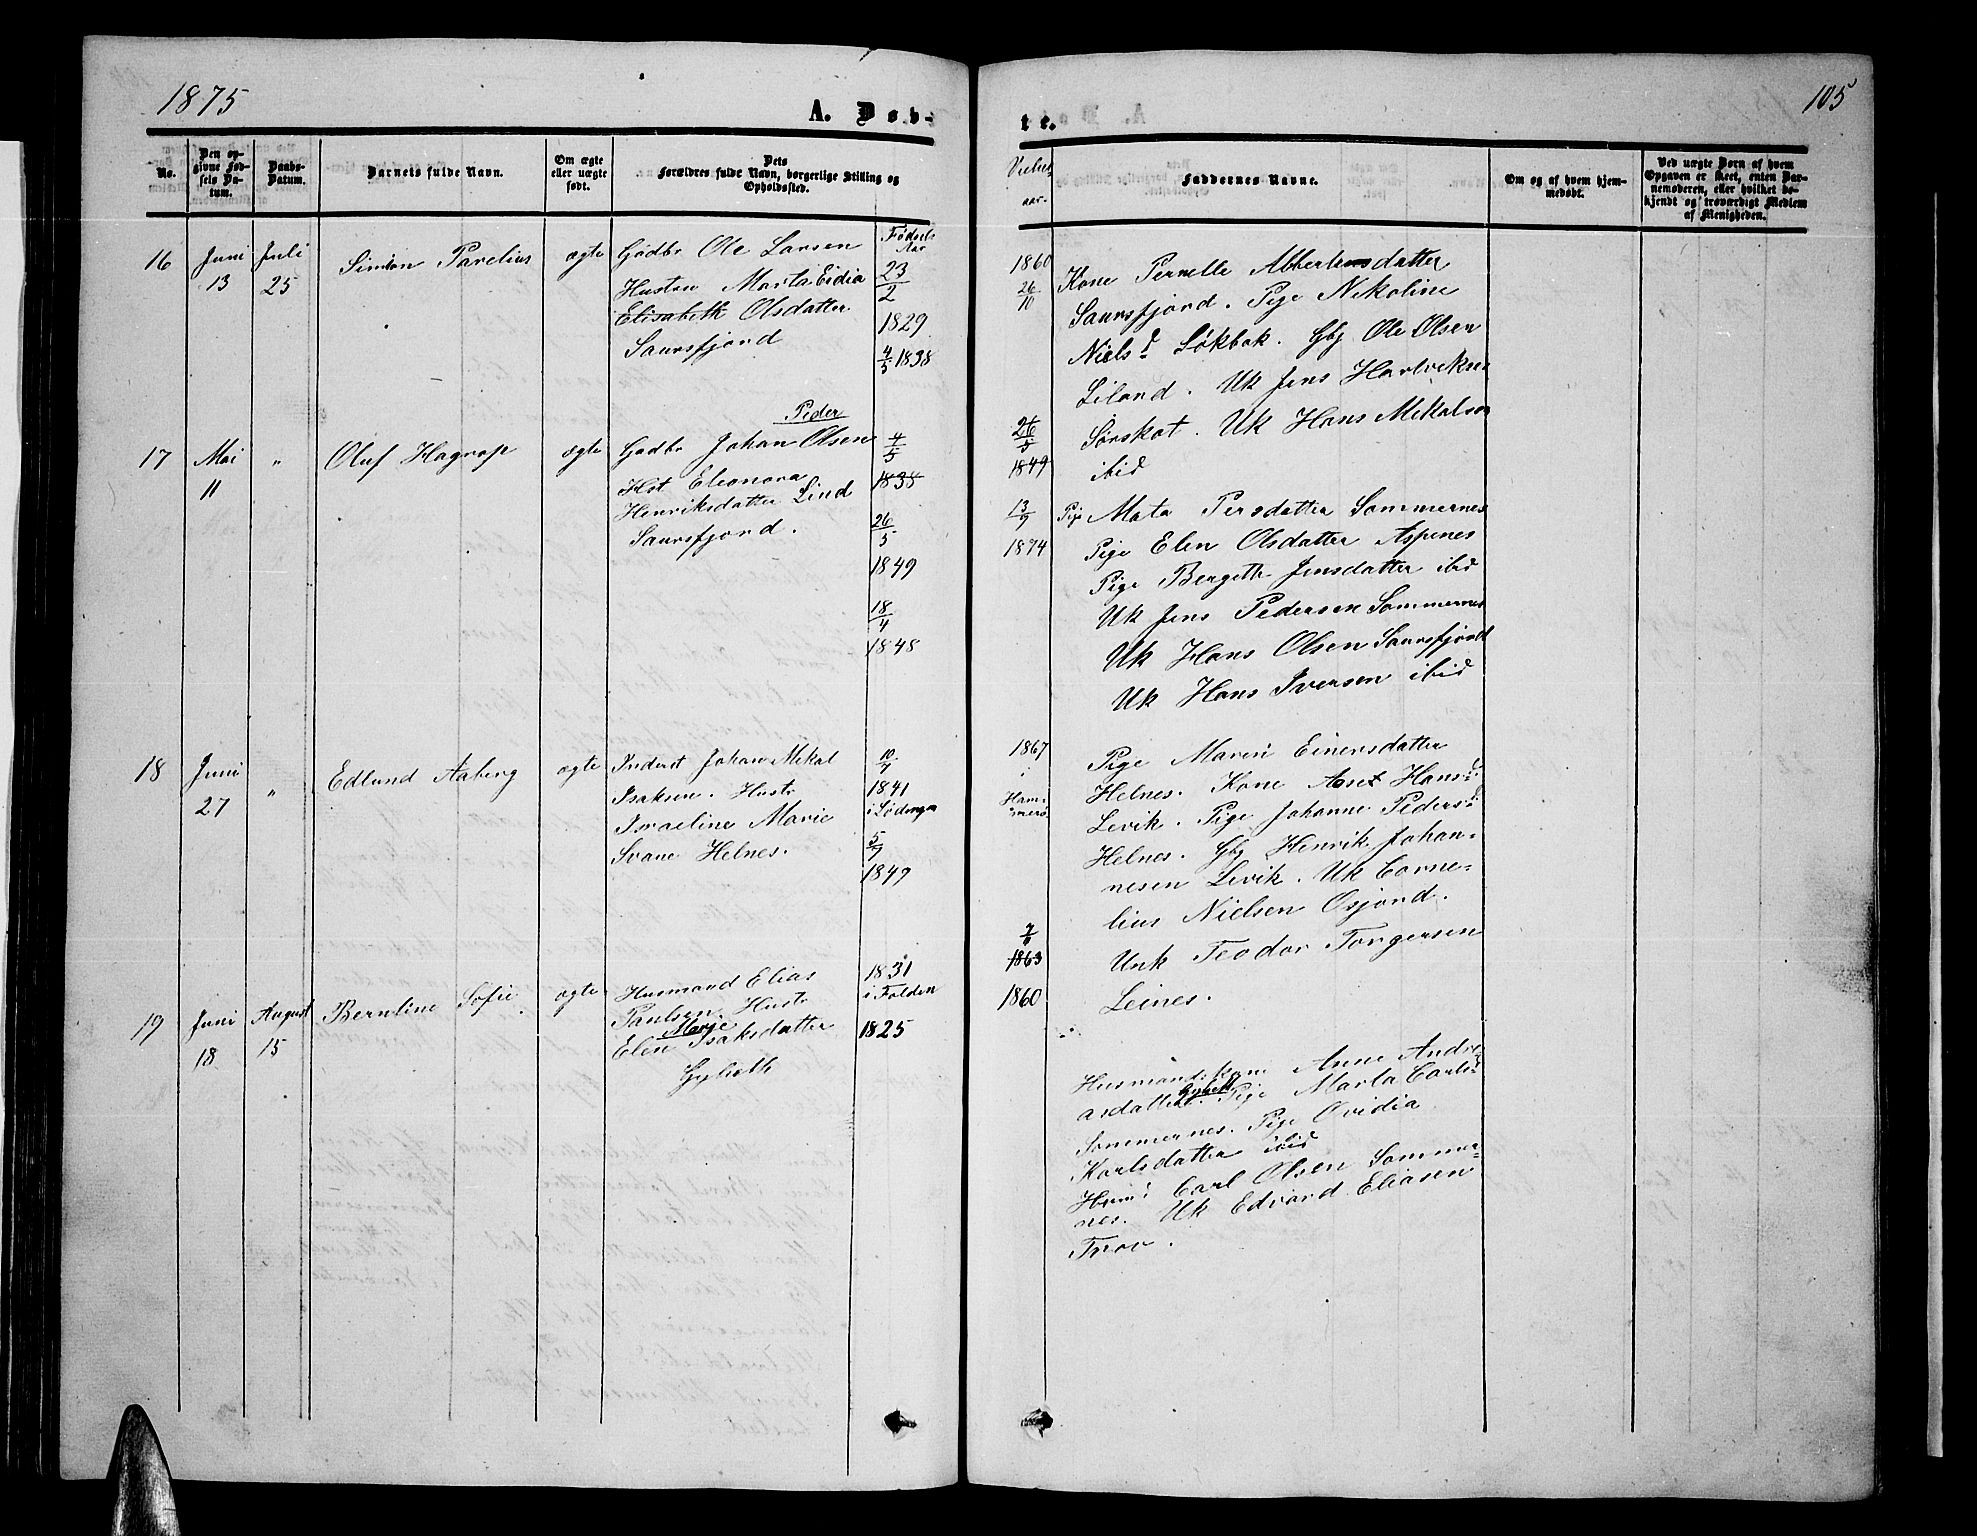 1875
A. Døb-
No.
Den op-
givne Fød-
sels Da-
tum.
Daabs-
Datum.
Barnets fulde Navn.
Om ægte
eller uægte
født.
Dets
Forældres fulde Navn, borgerlige Stilling og
Opholdssted.
16
Juni
13
Juli
25
Simon Parelius
ægte
Gadbr Ole Larsen
Hustru Marta Eidia
Elisabeth Olsdatter
Saursfjord
Fødsels
Aar
23
2
1829
4
5 1838
17
Mai
11
"
Oluf Hagrop
ægte
Peder
Gadbr Johan Olsen
Hst Eleonora
Henriksdatter Lind
Saursfjord.
4
5
1835
26
5
1849
18
4
1848
18
Juni
27
"
Edlund Aaberg
ægte
Inderst Johan Mikal
Isaksen. Hustr
Israeline Marie
Svane Helnes.
10
7
1841
i Lødingen
5
7
1849
19
Juni
18
August
15
Berntine Sofie
ægte
Husmand Elias
Paulsen. Hustr
Marie
Elen Isaksdatter
1831
i Folden
1825
105
te.
Vielses
aar.
Faddernes Navne.
Om og af hvem hjem-
medøbt.
Ved uægte Børn af hvem
Opgaven er skeet, enten Bar-
nemoderen, eller hvilket be-
kjendt og troværdigt Medlem
af Menigheden.
1860
26
10
Kone Pernelle Abbertensdatter
Saursfjord. Pige Nikoline
Nielsd Løkbak. Gbg Ole Olsen
Liland. Uk Jens Hartviksen
Sørskat. Uk Hans Mikalsen
ibid
26
5
1849
13
9
1874
Pige Mata Persdatter Sommernes
Pige Elen Olsdatter Aspenes
Pige Bergeth Jensdatter ibid
Uk Jens Pedersen Sommernes
Uk Hans Olsen Saursfjord
Uk Hans Iversen ibid
1867
i
Ham-
merø
Pige Maren Einersdatter
Helnes. Kone Anet Hansd
Levik. Pige Johanne Pedersd
Helnes. Gbg Henrik Johan-
nesen Levik. Uk Corne-
lius Nielsen Osjord.
Unk Teodor Torgersen
Leines.
1863
1860
Husmandskone Anne Andre-
asdatter. Pige Marta Carlsd
Sommernes. Pige Ovidia
Karlsdatter ibid
Husmd Carl Olsen Sommer-
nes. Uk Edvard Eliasen